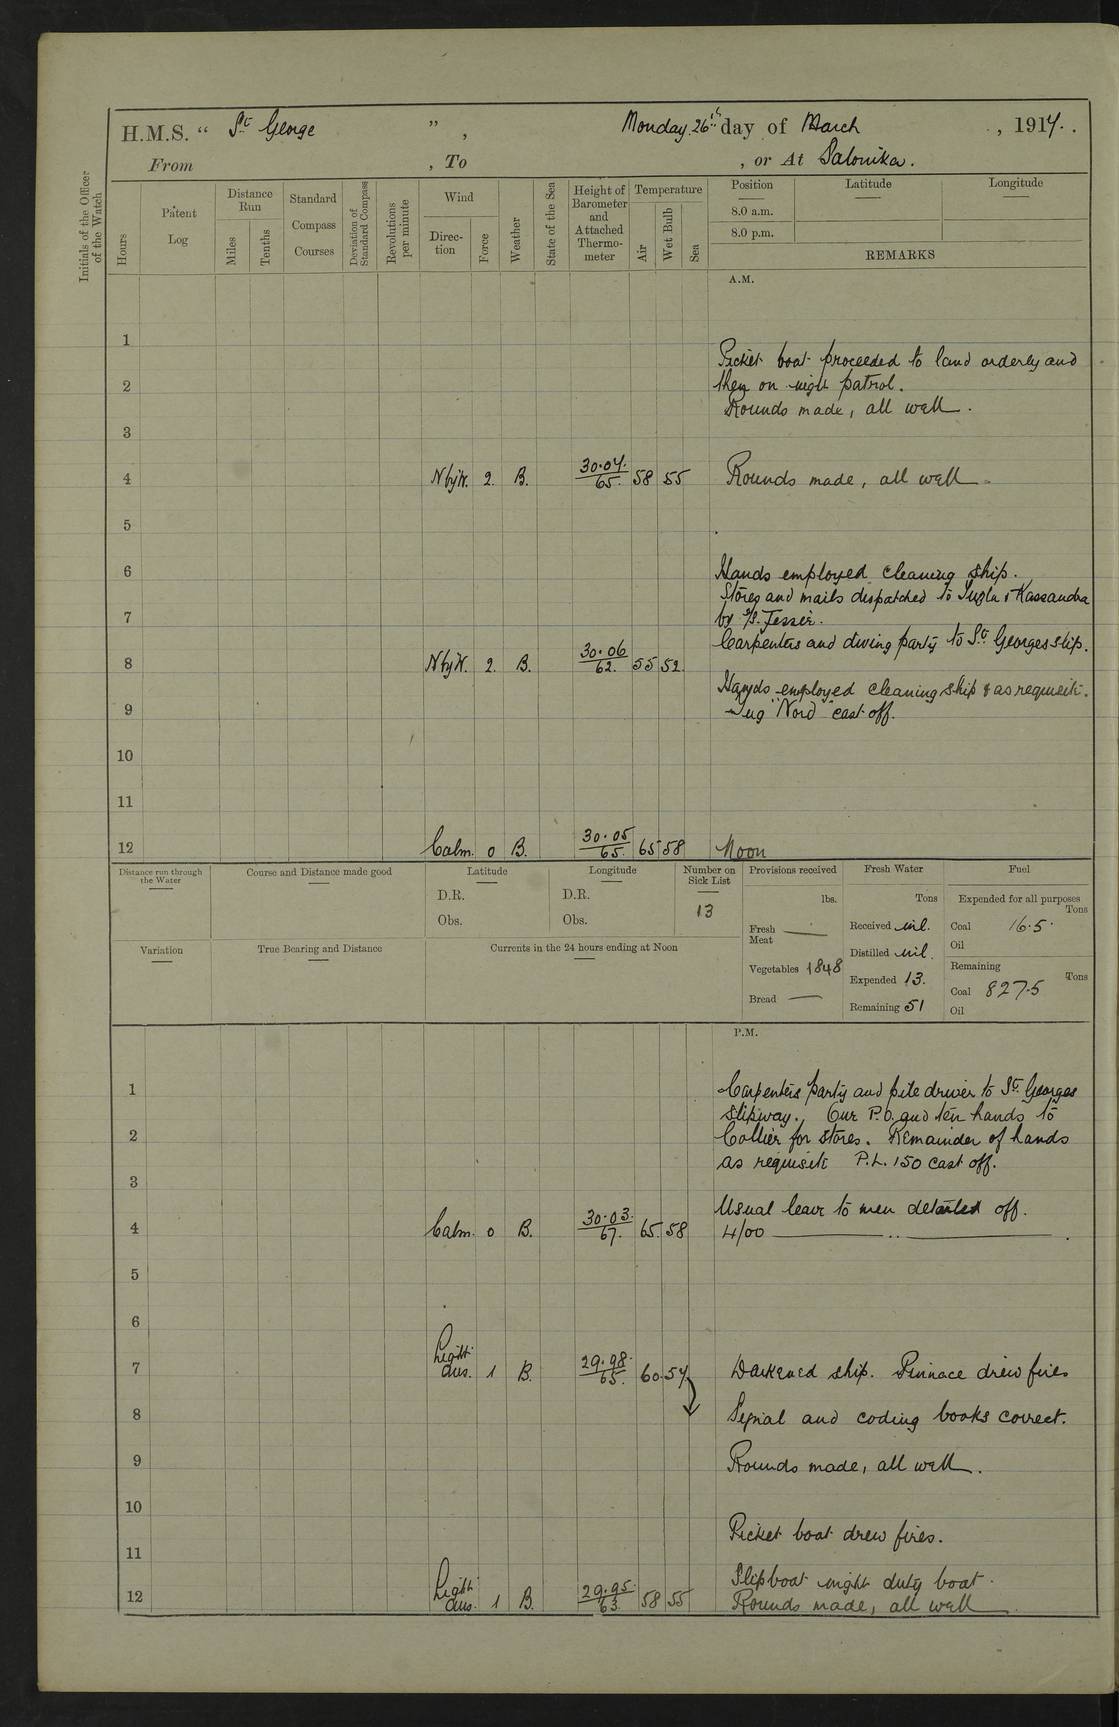 H.M.S. “ St George ” , Monday 26th day of March , 1917.
From , To , or At Salonika.
Initials of the Officer of the Watch
Hours
Patent Log
Distance Run
Miles
Tenths
Standard Compass Courses
Deviation of Standard Compass
Revolutions per minute
Wind
Direction
Force
Weather
State of the Sea
Height of Barometer and Attached Thermometer
Temperature
Air
Wet Bulb
Sea
Position Latitude Longitude
8.0 a.m.
8.0 p.m.
REMARKS
A.M.
1
Picket boat proceeded to land orderly and
2 then on night patrol.
Rounds made, all well.
3
4 N by W. 2. B. 30.04. 65. 58 55 Rounds made, all well
5
6 Hands employed cleaning ship.
Stores and mails dispatched to Tuzla & Kassandra
7 by S/S. Jessie.
Carpenters and diving party to St. Georges slip.
8 N by W. 2. B. 30.06 62. 55 52.
Hands employed cleaning ship & as requisite.
9 Tug "Nord" cast off.
10
11
12 Calm. 0 B. 30.05 65. 65 58 Noon
Distance run through the Water
Course and Distance made good
Latitude
D.R.
Obs.
Longitude
D.R.
Obs.
Number on Sick List
13
Provisions received
lbs.
Fresh Meat —
Vegetables 1848
Bread —
Fresh Water
Tons
Received nil.
Distilled nil.
Expended 13.
Remaining 51
Fuel
Expended for all purposes
Tons
Coal 16.5.
Oil
Remaining
Tons
Coal 827.5
Oil
Variation
True Bearing and Distance
Currents in the 24 hours ending at Noon
P.M.
1 Carpenters party and pile driver to St. Georges
slipway. Our P.O. and ten hands to
2 Collier for stores. Remainder of hands
as requisite P.L. 150 cast off.
3
Usual leave to men detailed off.
4 Calm. 0 B. 30.03. 67. 65. 58 4/00 — .. — .
5
6
7 Light airs. 1 B. 29.98. 65. 60 57 Darkened ship. Pinnace drew fires
8 Signal and coding books correct.
9 Rounds made, all well.
10
Picket boat drew fires.
11
Slipboat night duty boat.
12 Light airs. 1 B. 29.95. 63. 58 55 Rounds made, all well